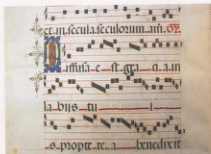 et in secula seculorum. am̄. Ov
Diffusa e st gra ti a in
la bijs tu i
s. propte re a benedixit